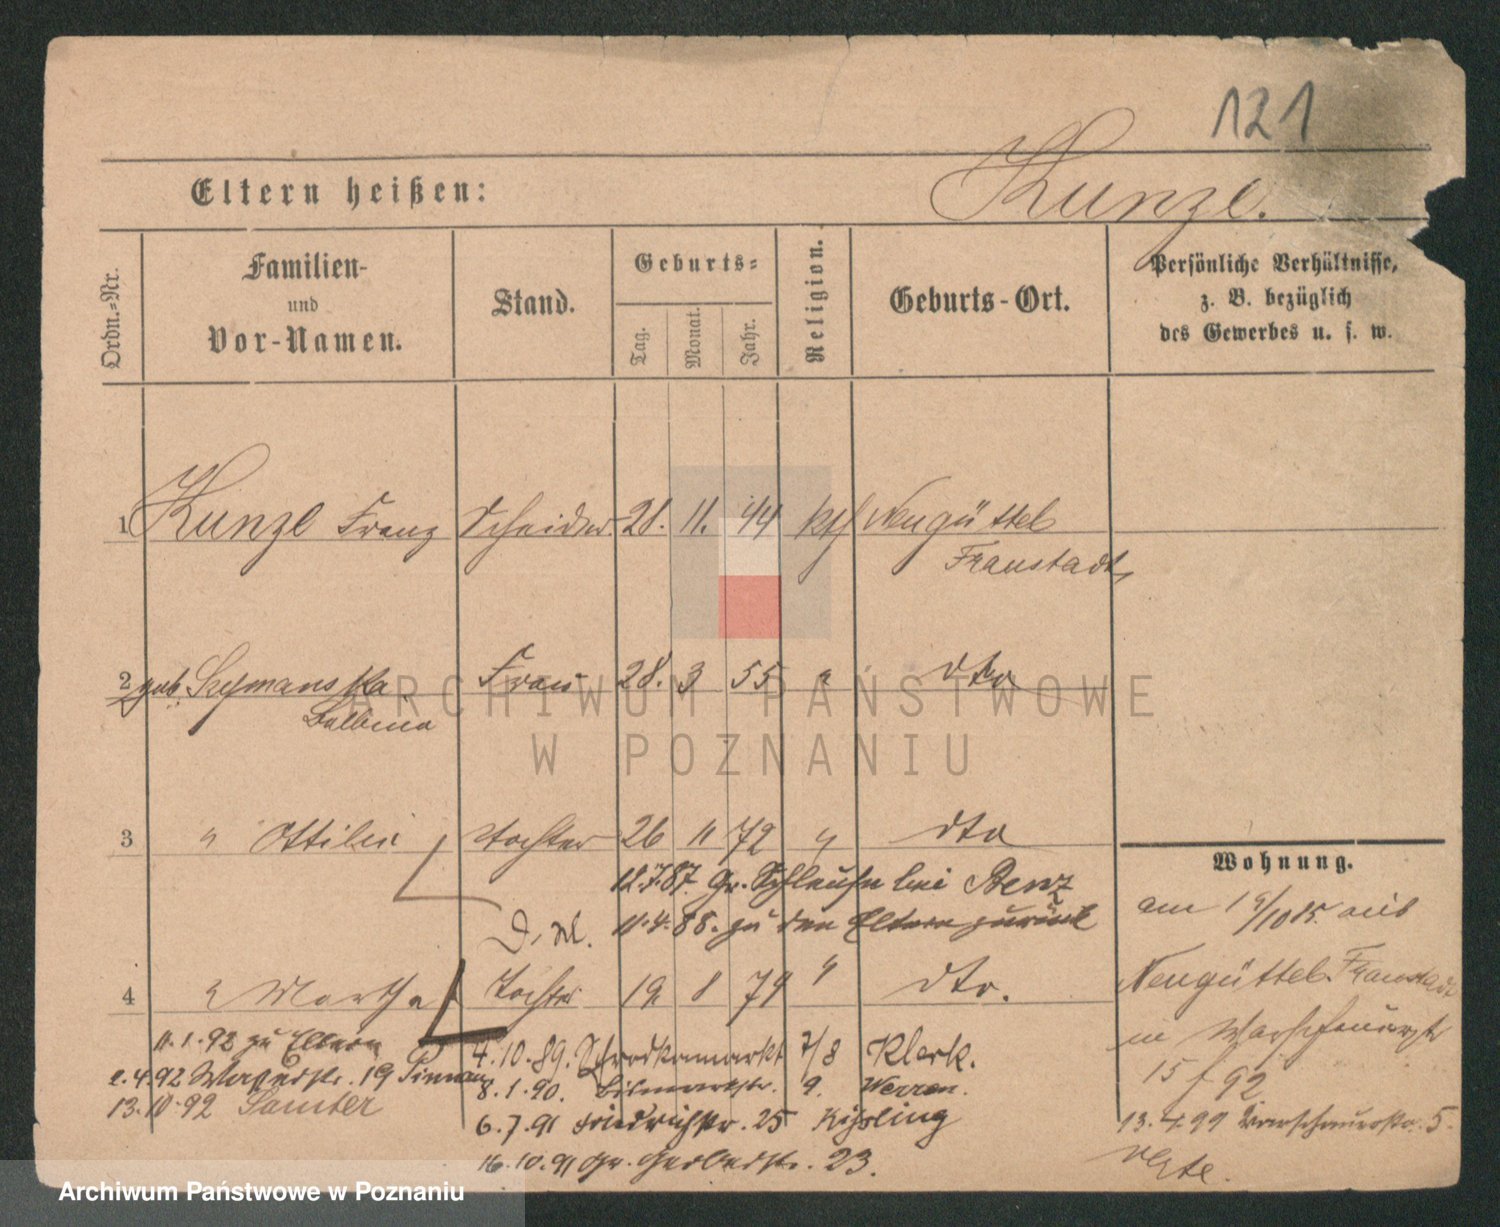 121
Eltern heißen:
Kunze.
Ordn.-Nr.
Familien-
und
Vor-Namen.
Stand.
Geburts-
Tag.
Monat.
Jahr.
Religion.
Geburts-Ort.
Persönliche Verhältnisse,
z. B. bezüglich
des Gewerbes u. s. w.
1 Kunze Franz 28. 11. 44 kth Neugüttel
Fraustadt
2 geb. Szymanska Frau 28. 3 55 " dto
Balbina
ARCHIWUM PAŃSTWOWE
W POZNANIU
3 " Ottilie Tochter 26 11 72 " dto
12.7.87. Gr. bei Benz
11.4.88. zu den Eltern zurück
4 " Martha Tochter 19 8 79 " dto.
Wohnung.
am 19/10 85 aus
Neugüttel Fraustadt
in
15 f 92
13.4.99 Warschauerstr. 5.
11.1.92 zu Eltern
2.4.92 19
13.10.92 Samter
4.10.89. Schrodkamarkt 7/8 Klerk.
8.1.90. Bismarckstr. 9.
6.7.91 Friedrichstr. 25 Kißling
16.10.91 Gr. Gerberstr. 23.
Archiwum Państwowe w Poznaniu